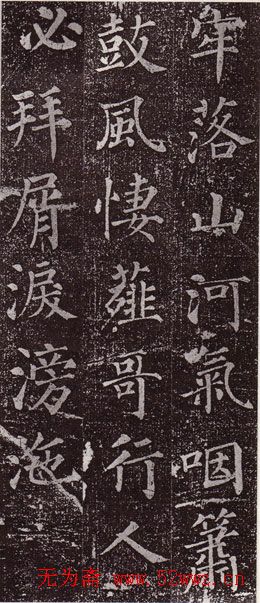 牢落山河氣咽簫
鼓風悽薤哥行人
必拜屑淚滂沲
无为斋 www.52wwz.cn